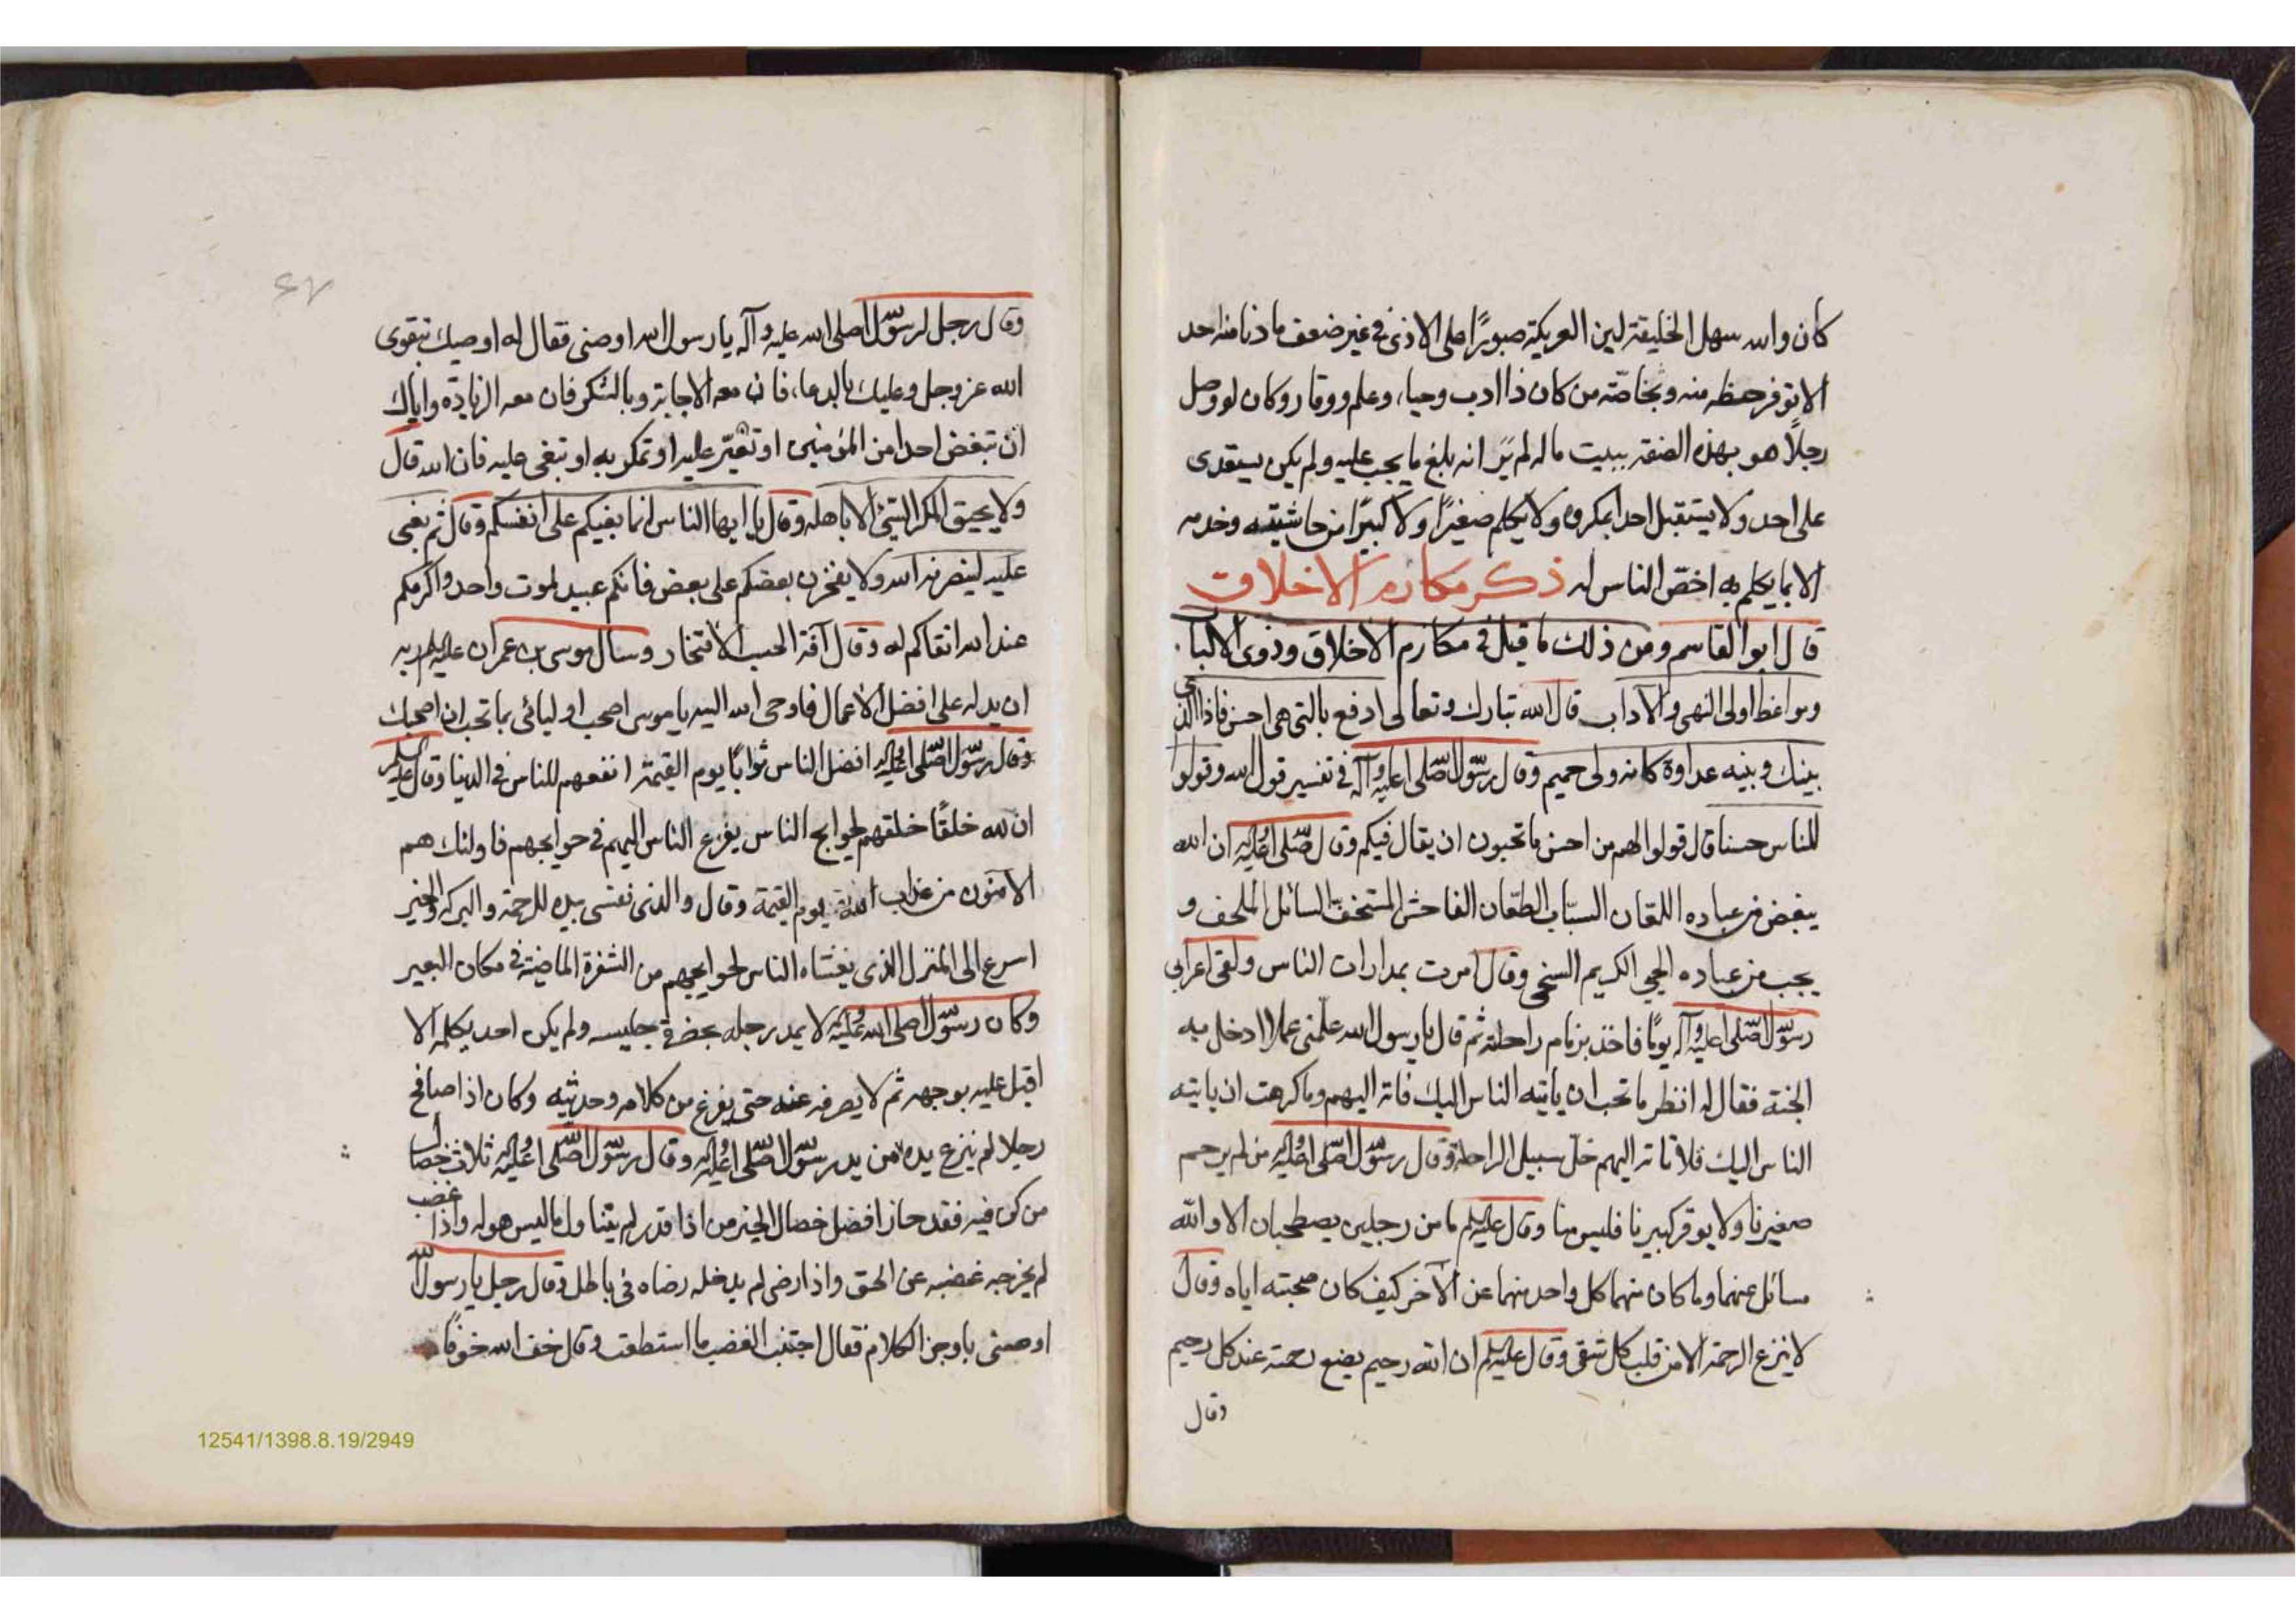 كان والله سهل الخليقة لين العريكة صبورًا على الاذى فى غير ضعف ما دنا منه احد
الا توفر حظه منه وبخاصّة من كان ذا ادب وحياء وعلم ووقار وكان لو وصل
رجلًا هو بهذه الصفة ببيت ماله لم يَرَ انه بلغ ما يجب عليه ولم يكن يستعدى
على احد ولا يستقبل احدا بمكروه ولا يكلم صغيرًا ولا كبيرًا من حاشيته وخدمه
الا بما يكلم به اخصّ الناس له ذكر مكارم الاخلاق
قال ابو القاسم ومن ذلك ما قيل فى مكارم الاخلاق وذوى الالباب
ومواعظ اولى النهى والآداب قال الله تبارك وتعالى ادفع بالتى هى احسن فاذا الذى
بينك وبينه عداوة كانه ولى حميم وقال رسول الله صلى الله عليه وآله فى تفسير قول الله وقولوا
للناس حسنا قال قولوا لهم من احسن ما تحبون ان يقال فيكم وقال صلى الله عليه وآله ان الله
يبغض من عباده اللعّان السبّاب الطعّان الفاحش المستخفّ السائل الملحف و
يحب من عباده الحيي الكريم السخى وقال امرت بمدارات الناس ولقى اعرابى
رسول الله صلى الله عليه وآله يومًا فاخذ بزمام راحلته ثم قال يا رسول الله علّمنى عملا ادخل به
الجنة فقال له انظر ما تحب ان ياتيه الناس اليك فاته اليهم وما كرهت ان ياتيه
الناس اليك فلا تاته اليهم خلّ سبيل الراحلة وقال رسول الله صلى الله عليه وآله من لم يرحم
صغيرنا ولا يوقر كبيرنا فليس منا وقال عليه السلم ما من رجلين يصطحبان الا والله
سائل عنهما وما كان منهما كل واحد منهما عن الآخر كيف كان صحبته اياه وقال
لا ينزع الرحمة الا من قلب كل شقى وقال عليه السلم ان الله رحيم يضع رحمته عند كل رحيم
وقال
وقال رجل لرسول الله صلى الله عليه وآله يا رسول الله اوصنى فقال له اوصيك بتقوى
الله عز وجل وعليك بالدعاء فان معه الاجابة وبالشكر فان معه الزيادة واياك
ان تبغض احدا من المؤمنين او تعيّر عليه او تمكر به او تبغى عليه فان الله قال
ولا يحيق المكر السيئ الا باهله وقال يا ايها الناس انما بغيكم على انفسكم وقال ثم بغى
عليه لينصرنه الله ولا يفخرن بعضكم على بعض فانكم عبيد لموت واحد واكرمكم
عند الله اتقاكم له وقال آفة الحسب الافتخار وسال موسى بن عمران عليه السلم ربه
ان يدله على افضل الاعمال فاوحى الله اليه يا موسى اصحب اوليائى بما تحب ان اصحبك
وقال رسول الله صلى الله عليه وآله افضل الناس ثوابًا يوم القيمة انفعهم للناس فى الدنيا وقال عليه السلم
ان لله خلقًا خلقهم لحوايج الناس يفزع الناس اليهم فى حوايجهم فاولئك هم
الآمنون من عذاب الله يوم القيمة وقال والذى نفسى بيده للرحمة والبركة والخير
اسرع الى المنزل الذى يغشاه الناس لحوايجهم من الشفرة الماضية فى مكان البعير
وكان رسول الله صلى الله عليه وآله لا يمد رجله بحضرة جليسه ولم يكن احد يكلمه الا
اقبل عليه بوجهه ثم لا يصرفه عنه حتى يفرغ من كلامه وحديثه وكان اذا صافح
رجلا لم ينزع يده من يد رسول الله صلى الله عليه وآله وقال رسول الله صلى الله عليه وآله ثلاث خصال
من كن فيه فقد حاز افضل خصال الخير من اذا قدر لم يتناول ما ليس هو له واذا غضب
لم يخرجه غضبه عن الحق واذا رضى لم يدخله رضاه فى باطل وقال رجل يا رسول الله
اوصنى باوجز الكلام فقال اجتنب الغضب ما استطعت وقال خف الله خوفًا
12541/1398.8.19/2949